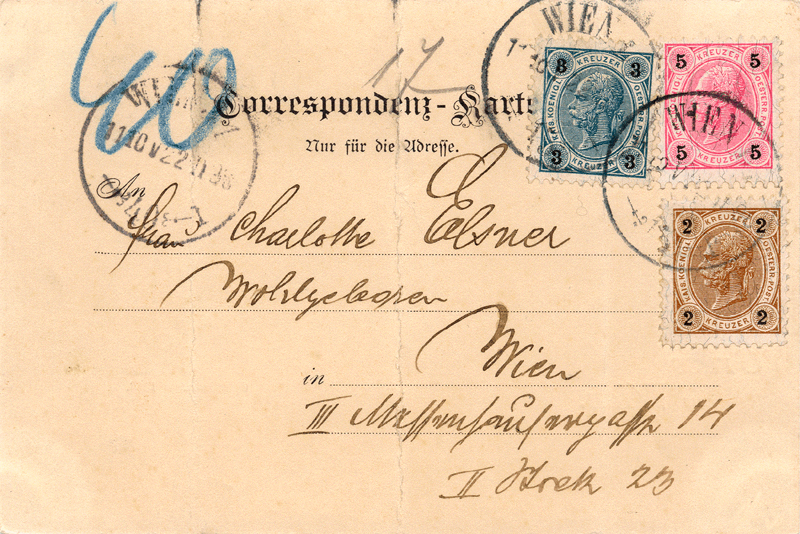 40
17
WIEN
Correspondenz-Karte
Nur für die Adresse.
3 KREUZER 3
KAIS. KOENIGL. OESTERR. POST.
3 KREUZER 3
5 KREUZER 5
KAIS. KOENIGL. OESTERR. POST.
5 KREUZER 5
WIEN
An
Frau Charlotte Elsner
Wohlgeboren
2 KREUZER 2
KAIS. KOENIGL. OESTERR. POST.
2 KREUZER 2
in Wien
III Messenhausergasse 14
II Stock 23